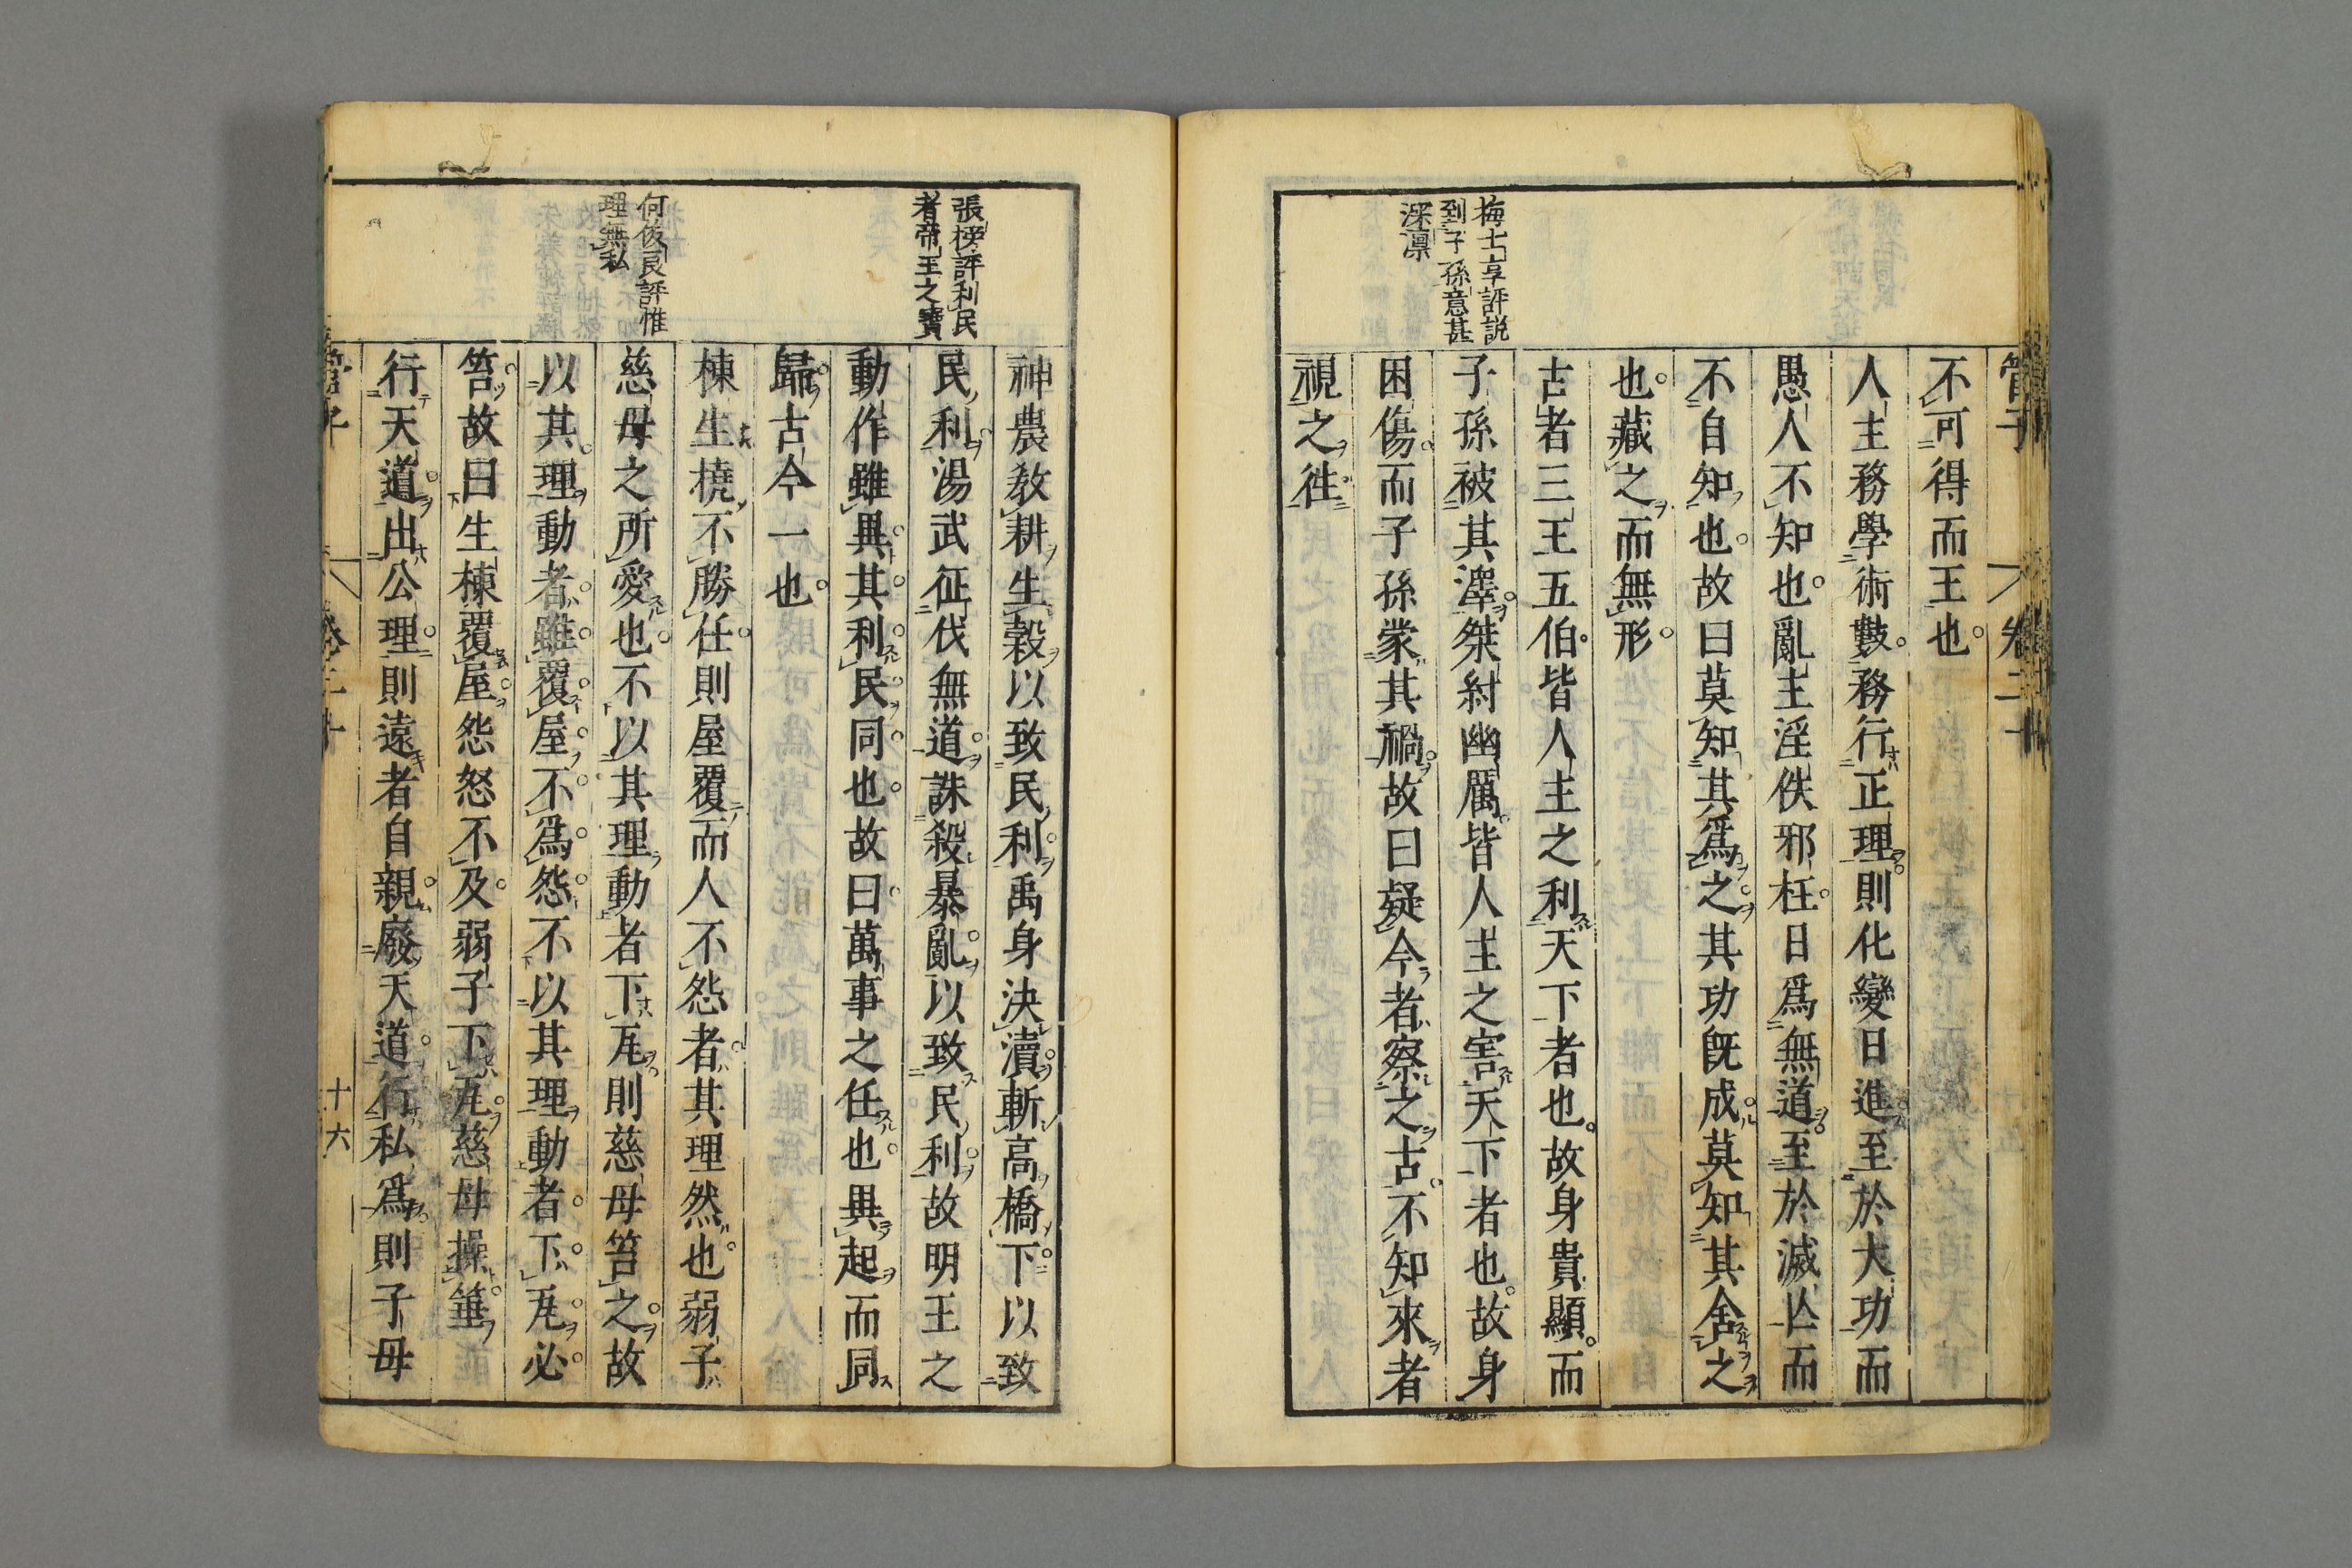 管子
卷二十
梅士享評説
到子孫意甚
深凛
不可得而王也
人主務學術數務行正理則化變日進至於大功而
愚人不知也亂主淫佚邪枉日爲無道至於滅亡而
不自知也故曰莫知其爲之其功旣成莫知其舍之
也藏之而無形
古者三王五伯皆人主之利天下者也故身貴顯而
子孫被其澤桀紂幽厲皆人主之害天下者也故身
困傷而子孫蒙其禍故曰疑今者察之古不知來者
視之徃
張榜評利民
者帝王之寶
何俊良評惟
理無私
神農敎耕生穀以致民利禹身決瀆斬高橋下以致
民利湯武征伐無道誅殺暴亂以致民利故明王之
動作雖異其利民同也故曰萬事之任也異起而同
歸古今一也
棟生橈不勝任則屋覆而人不怨者其理然也弱子
慈母之所愛也不以其理動者下瓦則慈母笞之故
以其理動者雖覆屋不爲怨不以其理動者下瓦必
笞故曰生棟覆屋怨怒不及弱子下瓦慈母操箠
行天道出公理則遠者自親廢天道行私爲則子母
管子
卷二十
十六